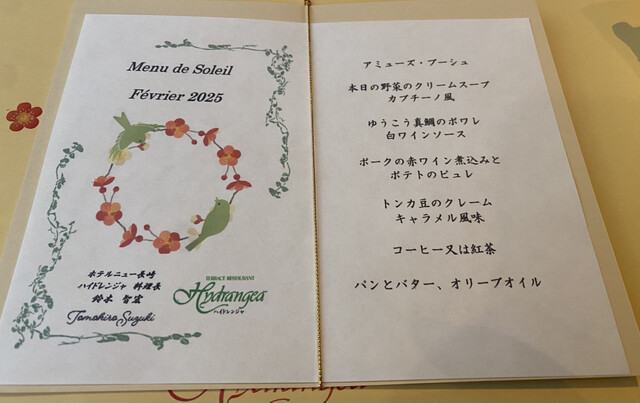 Menu de Soleil
Février 2025
ホテルニュー長崎
ハイドレンジャ 料理長
鈴木 智宏
Tomohiro Suzuki
TERRACE RESTAURANT
Hydrangea
ハイドレンジャ
アミューズ・ブーシュ
本日の野菜のクリームスープ
カプチーノ風
ゆうこう真鯛のポワレ
白ワインソース
ポークの赤ワイン煮込みと
ポテトのピュレ
トンカ豆のクレーム
キャラメル風味
コーヒー又は紅茶
パンとバター、オリーブオイル
Hydrangea